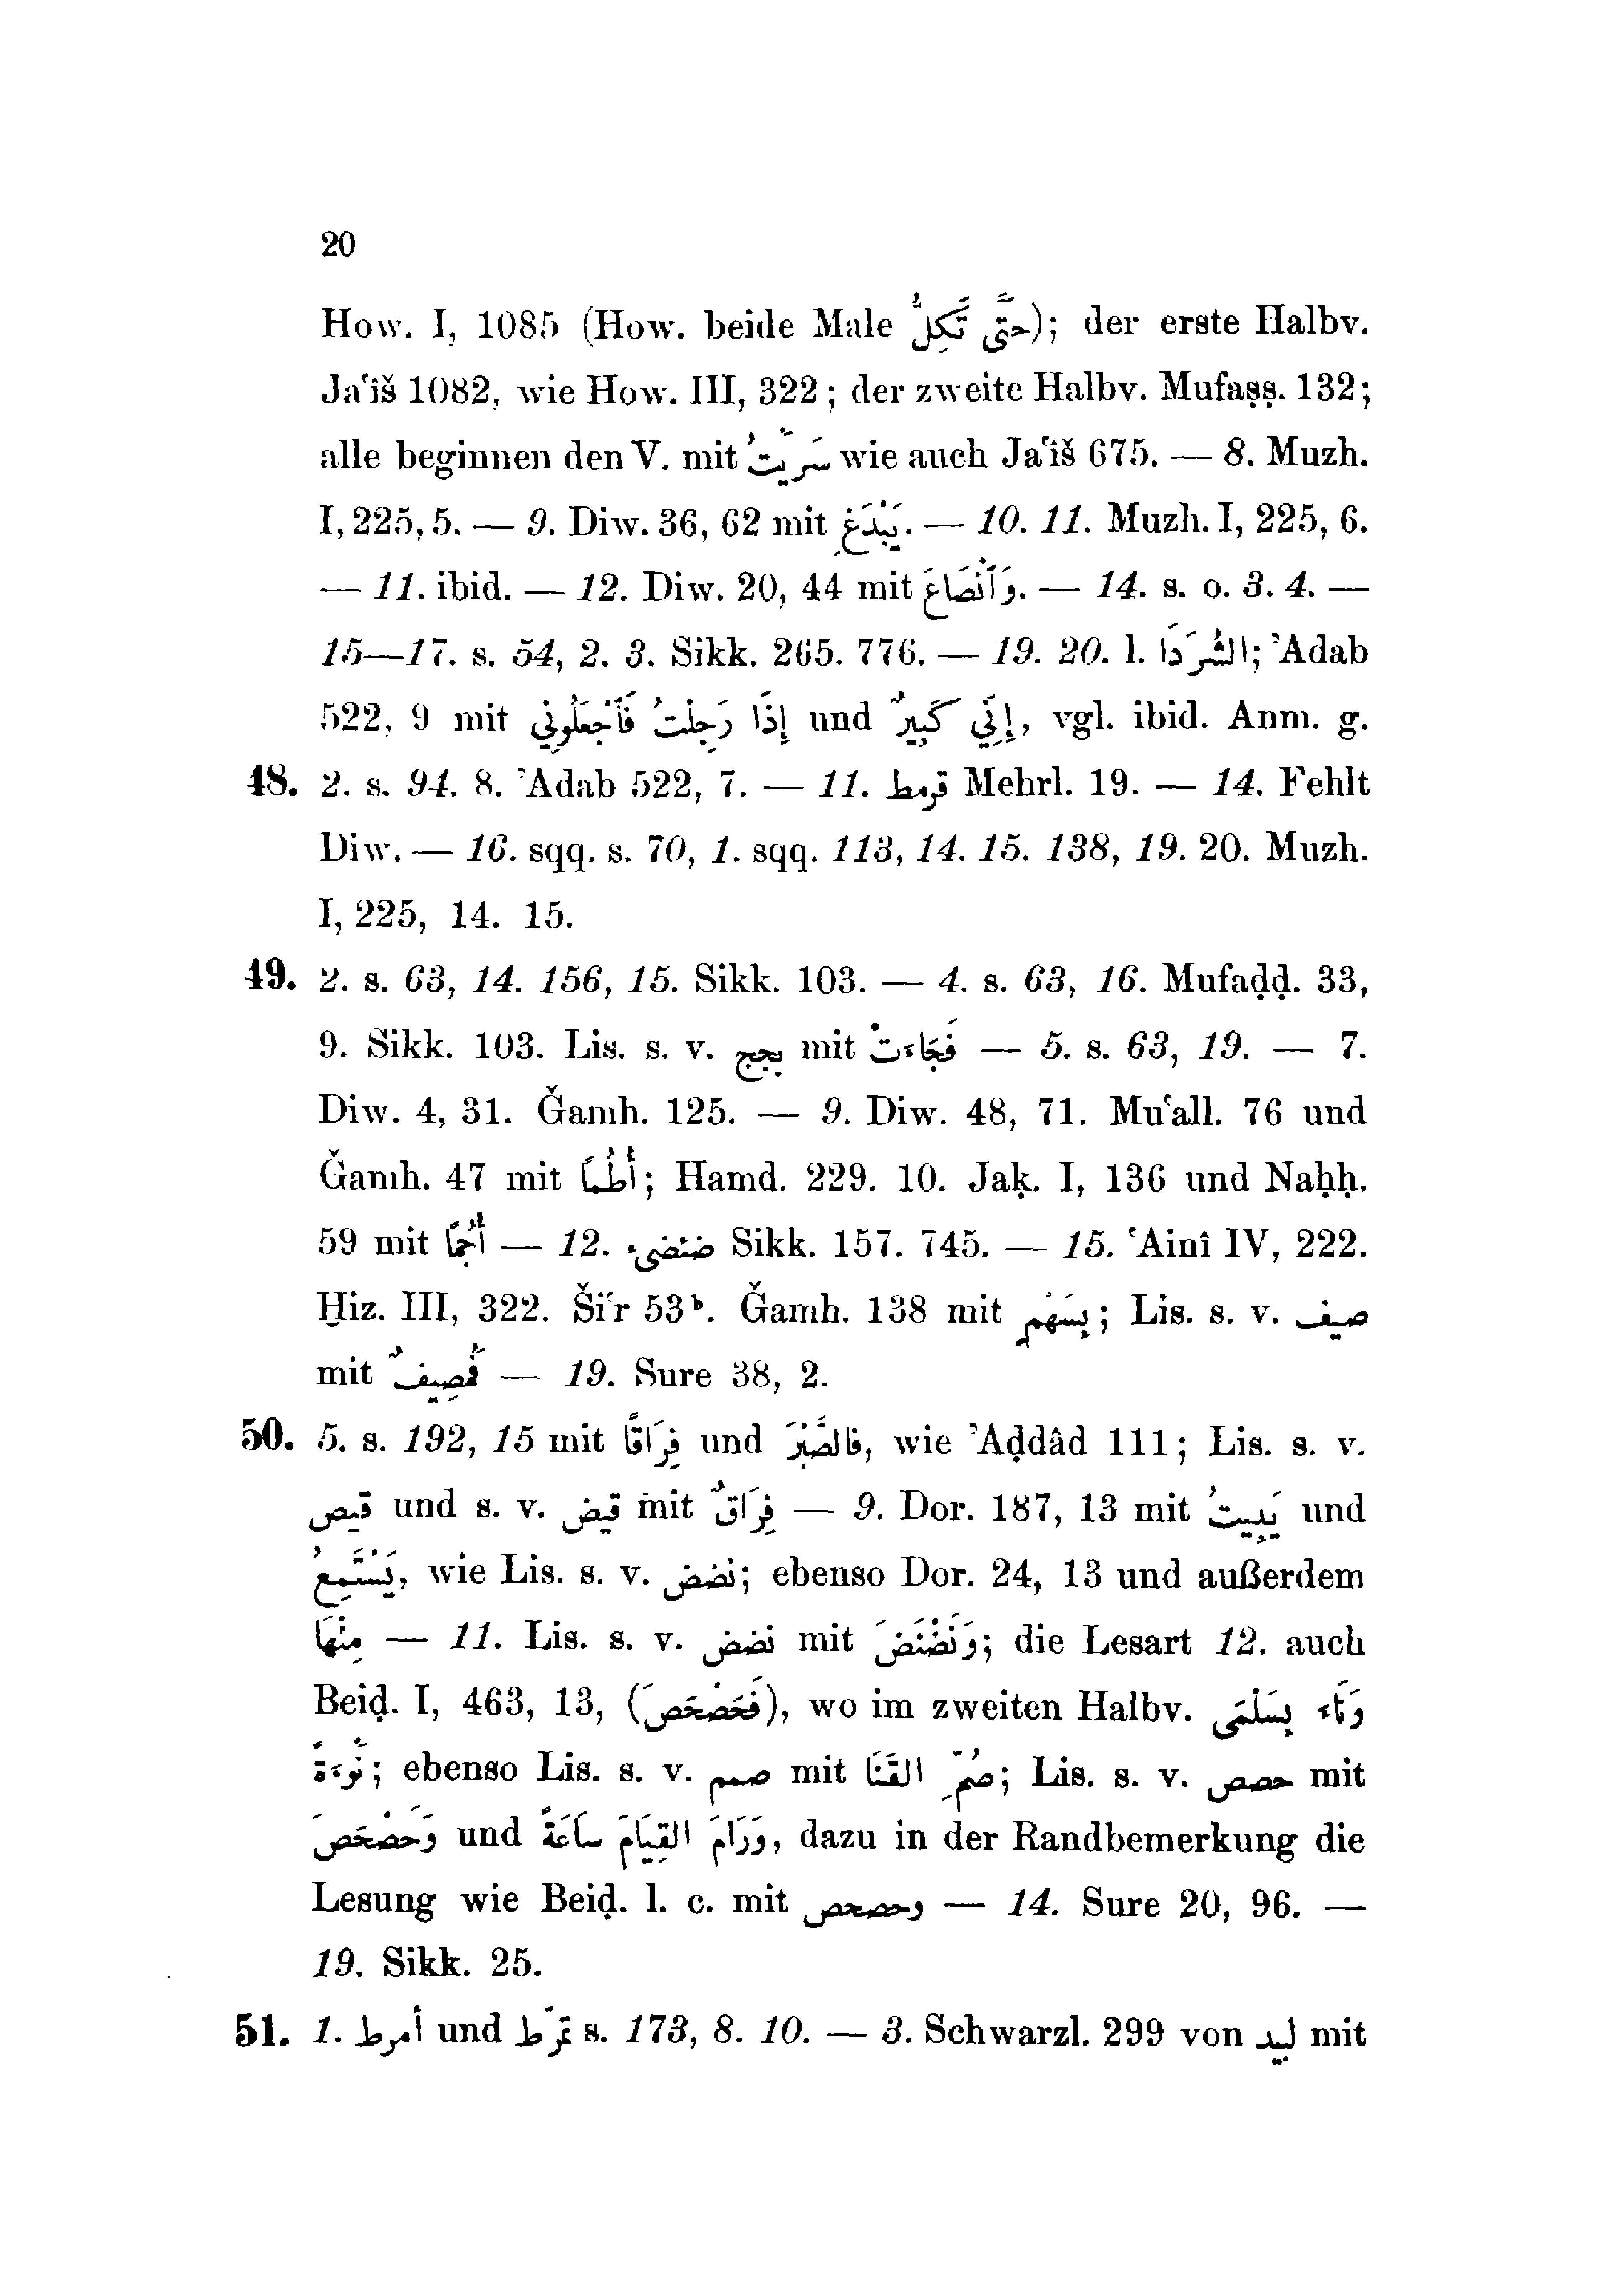 20
How. I, 1085 (How. beide Male حَتَّى تَكِلُّ); der erste Halbv.
Jaʿiš 1082, wie How. III, 322; der zweite Halbv. Mufaṣṣ. 132;
alle beginnen den V. mit سَرَيْتُ wie auch Jaʿiš 675. — 8. Muzh.
I, 225, 5. — 9. Diw. 36, 62 mit يَبْدَغِ. — 10. 11. Muzh. I, 225, 6.
— 11. ibid. — 12. Diw. 20, 44 mit وَٱنْصَاعَ. — 14. s. o. 3. 4. —
15—17. s. 54, 2. 3. Sikk. 265. 776. — 19. 20. l. الشَّرَدَا; ʾAdab
522, 9 mit إِذَا رَجِلْتُ فَٱجْعَلُونِي und إِنِّي كَبِيرٌ, vgl. ibid. Anm. g.
48. 2. s. 94. 8. ʾAdab 522, 7. — 11. قرمط Mehrl. 19. — 14. Fehlt
Diw. — 16. sqq. s. 70, 1. sqq. 113, 14. 15. 138, 19. 20. Muzh.
I, 225, 14. 15.
49. 2. s. 63, 14. 156, 15. Sikk. 103. — 4. s. 63, 16. Mufaḍḍ. 33,
9. Sikk. 103. Lis. s. v. بجج mit فَجَاءَتْ — 5. s. 63, 19. — 7.
Diw. 4, 31. Ǧamh. 125. — 9. Diw. 48, 71. Muʿall. 76 und
Ǧamh. 47 mit أُطُمًا; Hamd. 229. 10. Jaḳ. I, 136 und Naḥḥ.
59 mit أُجُمًا — 12. ضئضىء Sikk. 157. 745. — 15. ʿAinî IV, 222.
Ḫiz. III, 322. Šiʿr 53ᵇ. Ǧamh. 138 mit بِسَهْمٍ; Lis. s. v. صيف
mit فَمُصِيفٌ — 19. Sure 38, 2.
50. 5. s. 192, 15 mit فِرَاقًا und فَالصَّبْرَ, wie ʾAḍdâd 111; Lis. s. v.
قيص und s. v. قيض mit فِرَاقٌ — 9. Dor. 187, 13 mit يَبِيتُ und
يَسْتَمِعُ, wie Lis. s. v. نضض; ebenso Dor. 24, 13 und außerdem
مِنْهَا — 11. Lis. s. v. نضض mit وَنَضْنَضَ; die Lesart 12. auch
Beiḍ. I, 463, 13, (فَحَصْحَصَ), wo im zweiten Halbv. وَنَاءَ بِسَلْمَى
نَوْءَةً; ebenso Lis. s. v. صمم mit صُمِّ القَنَا; Lis. s. v. حصص mit
وَحَصْحَصَ und وَرَامَ القِيَامَ سَاعَةً, dazu in der Randbemerkung die
Lesung wie Beiḍ. l. c. mit وحصحص — 14. Sure 20, 96. —
19. Sikk. 25.
51. 1. أمرط und مَرَط s. 173, 8. 10. — 3. Schwarzl. 299 von لبيد mit